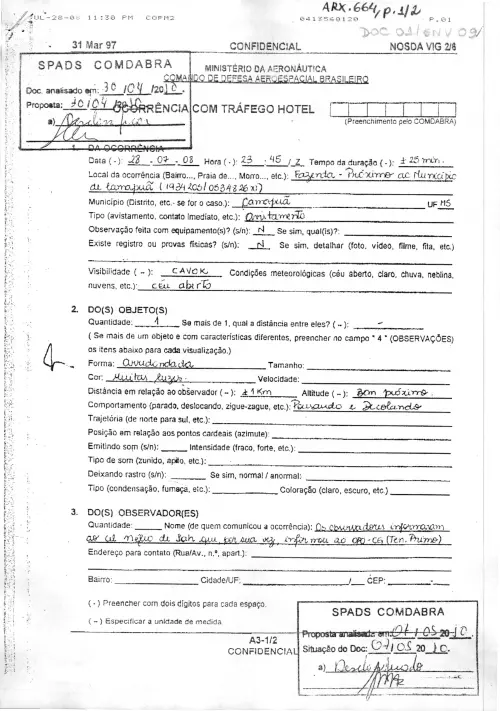 ARX.664, p.1/2
JUL-28-08 11:30 PM COPM2 0413560120 P.01
DOC 01/ENV 09/
31 Mar 97 CONFIDENCIAL NOSDA VIG 2/6
SPADS COMDABRA
Doc. analisado em: 30 /04 /2010.
Proposta: 30/04
a)
MINISTÉRIO DA AERONÁUTICA
COMANDO DE DEFESA AEROESPACIAL BRASILEIRO
OCORRÊNCIA COM TRÁFEGO HOTEL
(Preenchimento pelo COMDABRA)
1. DA OCORRÊNCIA
Data (-): 28 - 07 - 08 Hora (-): 23 : 45 / Z Tempo da duração (-): ± 25 min.
Local da ocorrência (Bairro..., Praia de..., Morro..., etc.): Fazenda - Próximo ao Município
de Camapuã (193420S/0534826W)
Município (Distrito, etc.- se for o caso.): Camapuã UF MS
Tipo (avistamento, contato imediato, etc.): Avistamento
Observação feita com equipamento(s)? (s/n): N Se sim, qual(is)?:
Existe registro ou provas físicas? (s/n): N Se sim, detalhar (foto, vídeo, filme, fita, etc.)
Visibilidade ( ~ ): CAVOK Condições meteorológicas (céu aberto, claro, chuva, neblina,
nuvens, etc.): céu aberto
2. DO(S) OBJETO(S)
Quantidade: 1 Se mais de 1, qual a distância entre eles? ( ~ ): -
( Se mais de um objeto e com características diferentes, preencher no campo " 4 " (OBSERVAÇÕES)
os itens abaixo para cada visualização.)
Forma: Arredondada Tamanho:
Cor: Muitas luzes. Velocidade:
Distância em relação ao observador ( ~ ): ± 1 Km Altitude ( ~ ): Bem próximo.
Comportamento (parado, deslocando, zigue-zague, etc.): Pousando e Decolando
Trajetória (de norte para sul, etc.):
Posição em relação aos pontos cardeais (azimute):
Emitindo som (s/n): Intensidade (fraco, forte, etc.):
Tipo de som (zunido, apito, etc.):
Deixando rastro (s/n): Se sim, normal / anormal:
Tipo (condensação, fumaça, etc.): Coloração (claro, escuro, etc.)
3. DO(S) OBSERVADOR(ES)
Quantidade: Nome (de quem comunicou a ocorrência): Os observadores informaram
ao Cel que por sua vez, informou ao OPO-CG (Ten. Primo)
Endereço para contato (Rua/Av., n.º, apart.):
Bairro: Cidade/UF: / CEP: -
( - ) Preencher com dois dígitos para cada espaço.
( ~ ) Especificar a unidade de medida
A3-1/2
CONFIDENCIAL
SPADS COMDABRA
Proposta analisada em: 07 / 05 2010.
Situação do Doc: 07/05 2010.
a) Desclassificado